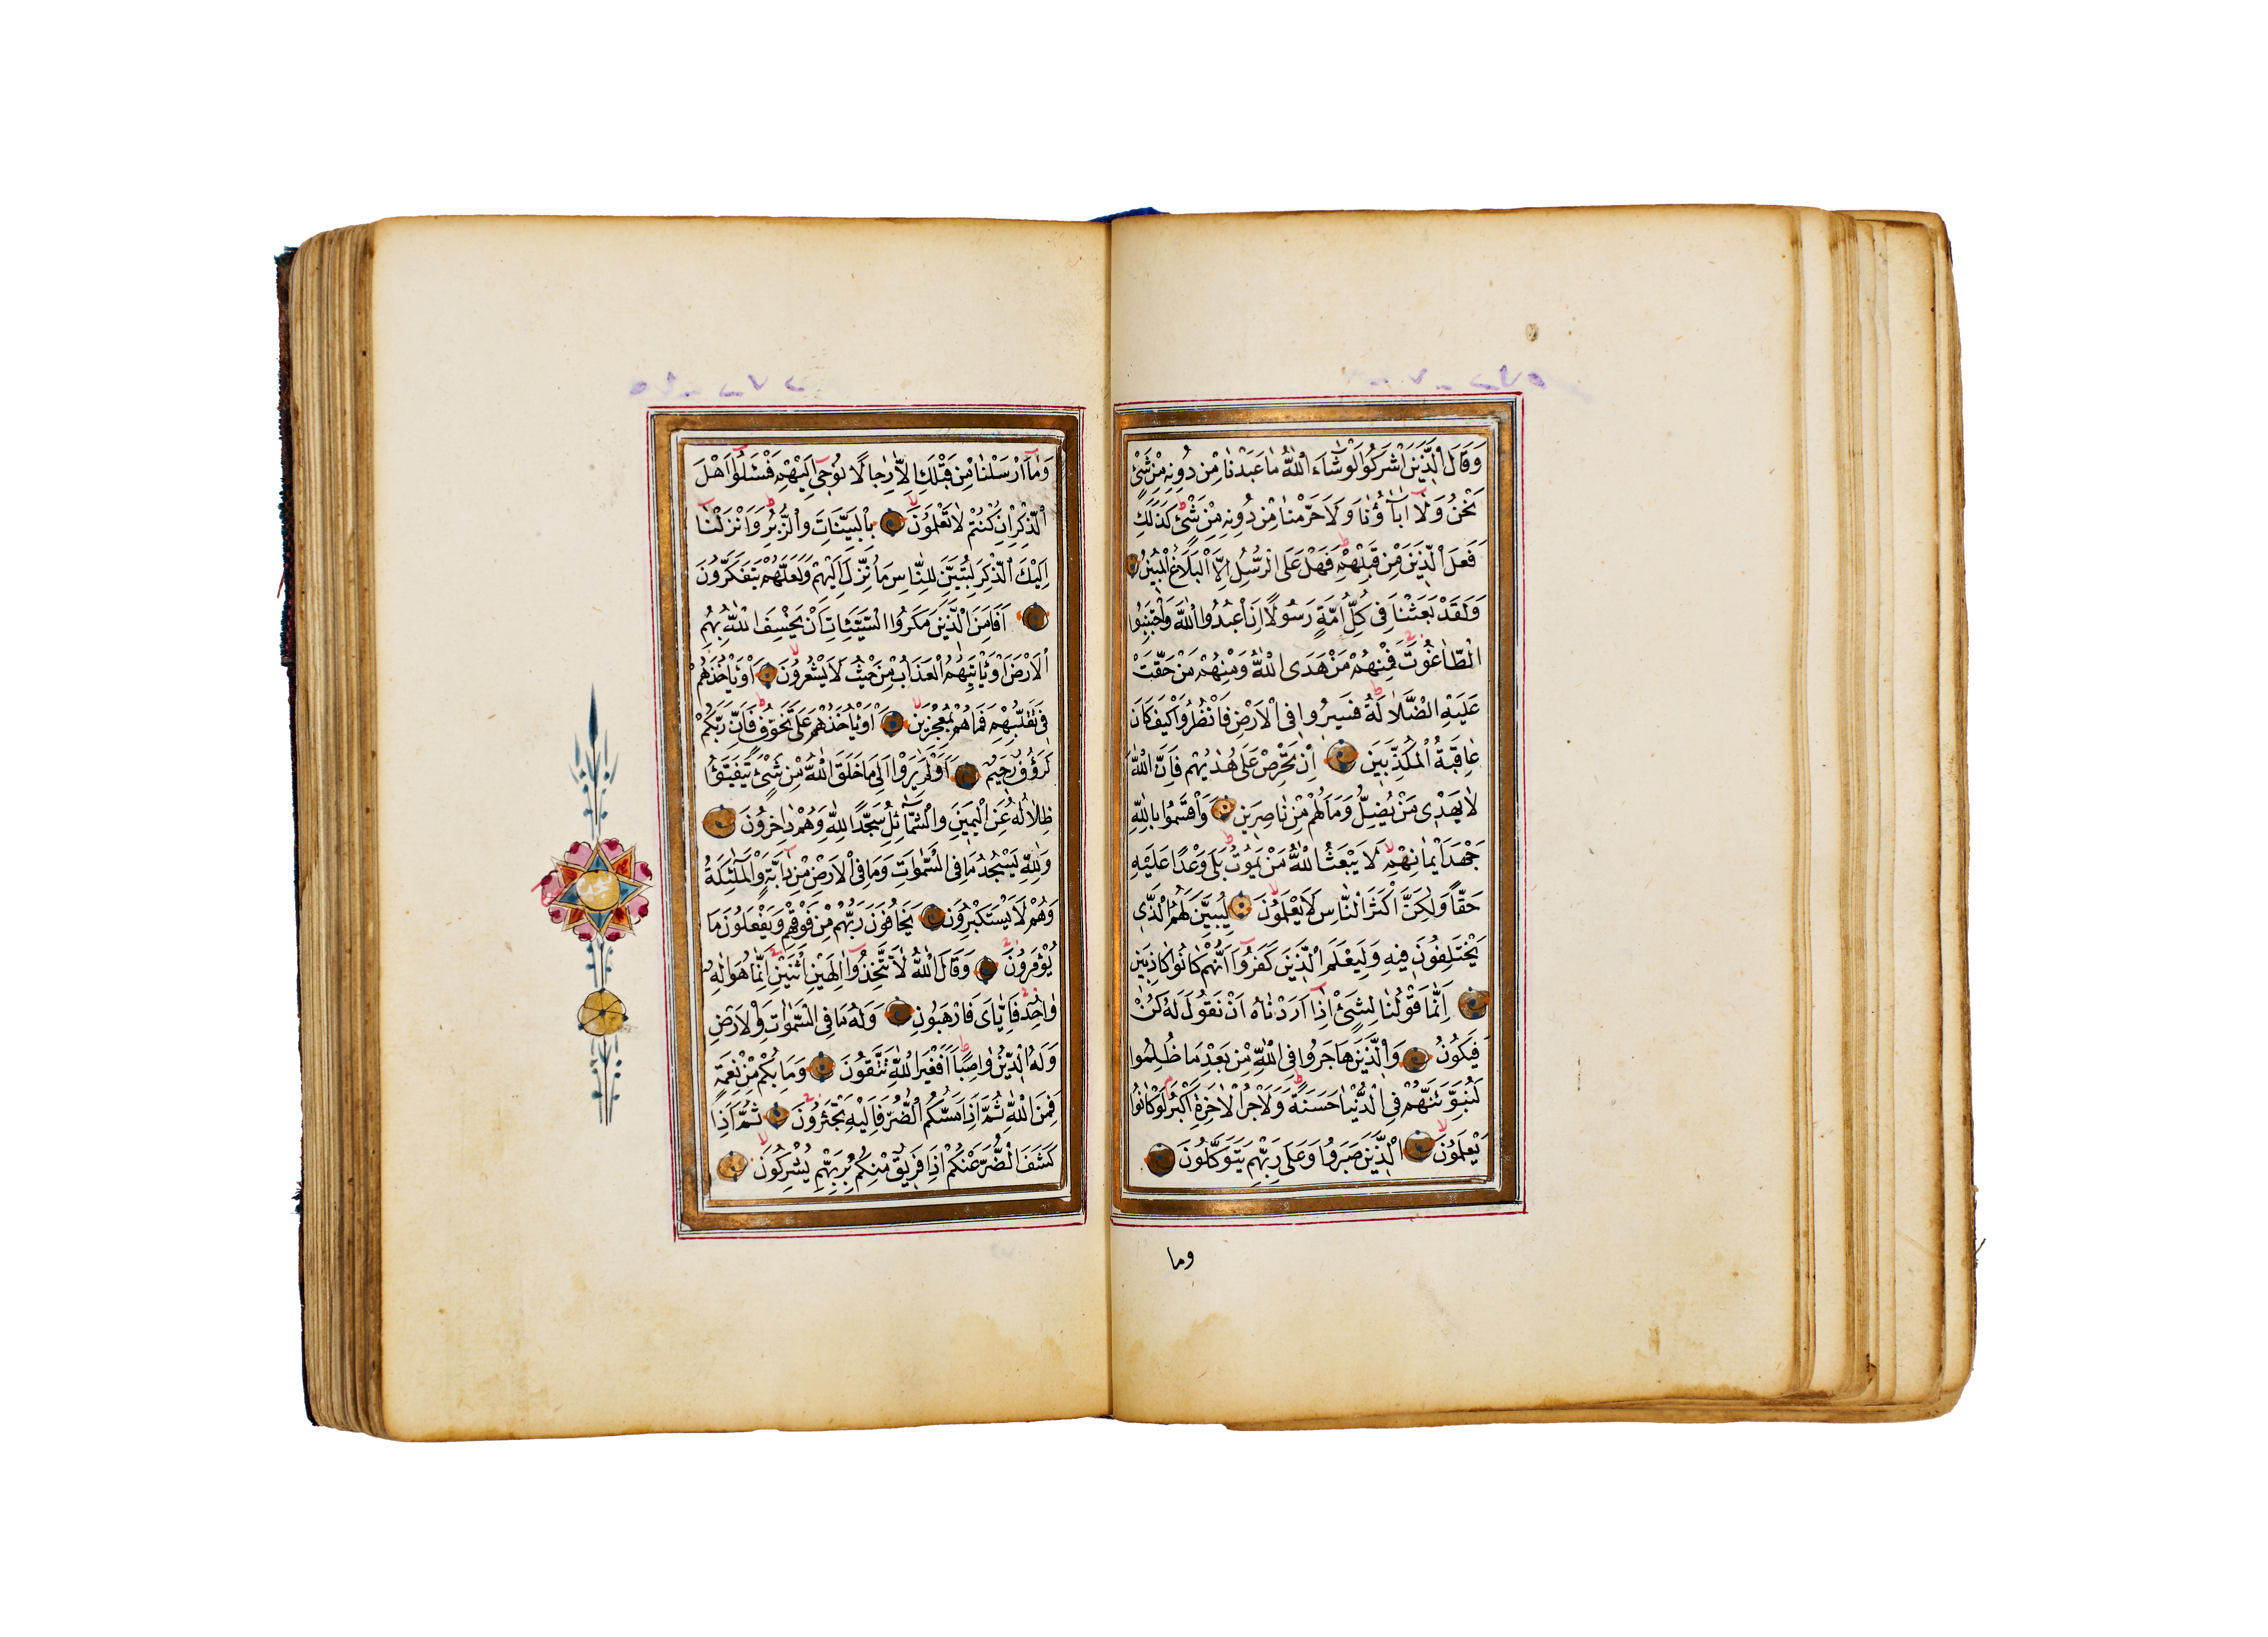 وَقَالَ الَّذِينَ اَشْرَكُوا لَوْ شَاءَ اللّٰهُ مَا عَبَدْنَا مِنْ دُونِهِ مِنْ شَيْءٍ
نَحْنُ وَلَا اٰبَاؤُنَا وَلَا حَرَّمْنَا مِنْ دُونِهِ مِنْ شَيْءٍ كَذٰلِكَ
فَعَلَ الَّذِينَ مِنْ قَبْلِهِمْ فَهَلْ عَلَى الرُّسُلِ اِلَّا الْبَلَاغُ الْمُبِينُ
وَلَقَدْ بَعَثْنَا فِي كُلِّ اُمَّةٍ رَسُولًا اَنِ اعْبُدُوا اللّٰهَ وَاجْتَنِبُوا
الطَّاغُوتَ فَمِنْهُمْ مَنْ هَدَى اللّٰهُ وَمِنْهُمْ مَنْ حَقَّتْ
عَلَيْهِ الضَّلَالَةُ فَسِيرُوا فِي الْاَرْضِ فَانْظُرُوا كَيْفَ كَانَ
عَاقِبَةُ الْمُكَذِّبِينَ اِنْ تَحْرِصْ عَلَى هُدٰيهُمْ فَاِنَّ اللّٰهَ
لَا يَهْدِي مَنْ يُضِلُّ وَمَا لَهُمْ مِنْ نَاصِرِينَ وَاَقْسَمُوا بِاللّٰهِ
جَهْدَ اَيْمَانِهِمْ لَا يَبْعَثُ اللّٰهُ مَنْ يَمُوتُ بَلَى وَعْدًا عَلَيْهِ
حَقًّا وَلٰكِنَّ اَكْثَرَ النَّاسِ لَا يَعْلَمُونَ لِيُبَيِّنَ لَهُمُ الَّذِي
يَخْتَلِفُونَ فِيهِ وَلِيَعْلَمَ الَّذِينَ كَفَرُوا اَنَّهُمْ كَانُوا كَاذِبِينَ
اِنَّمَا قَوْلُنَا لِشَيْءٍ اِذَا اَرَدْنَاهُ اَنْ نَقُولَ لَهُ كُنْ
فَيَكُونُ وَالَّذِينَ هَاجَرُوا فِي اللّٰهِ مِنْ بَعْدِ مَا ظُلِمُوا
لَنُبَوِّئَنَّهُمْ فِي الدُّنْيَا حَسَنَةً وَلَاَجْرُ الْاٰخِرَةِ اَكْبَرُ لَوْ كَانُوا
يَعْلَمُونَ الَّذِينَ صَبَرُوا وَعَلَى رَبِّهِمْ يَتَوَكَّلُونَ
وما
وَمَا اَرْسَلْنَا مِنْ قَبْلِكَ اِلَّا رِجَالًا نُوحِي اِلَيْهِمْ فَسْـَٔلُوا اَهْلَ
الذِّكْرِ اِنْ كُنْتُمْ لَا تَعْلَمُونَ بِالْبَيِّنَاتِ وَالزُّبُرِ وَاَنْزَلْنَا
اِلَيْكَ الذِّكْرَ لِتُبَيِّنَ لِلنَّاسِ مَا نُزِّلَ اِلَيْهِمْ وَلَعَلَّهُمْ يَتَفَكَّرُونَ
اَفَاَمِنَ الَّذِينَ مَكَرُوا السَّيِّئَاتِ اَنْ يَخْسِفَ اللّٰهُ بِهِمُ
الْاَرْضَ اَوْ يَاْتِيَهُمُ الْعَذَابُ مِنْ حَيْثُ لَا يَشْعُرُونَ اَوْ يَاْخُذَهُمْ
فِي تَقَلُّبِهِمْ فَمَا هُمْ بِمُعْجِزِينَ اَوْ يَاْخُذَهُمْ عَلَى تَخَوُّفٍ فَاِنَّ رَبَّكُمْ
لَرَؤُفٌ رَحِيمٌ اَوَلَمْ يَرَوْا اِلَى مَا خَلَقَ اللّٰهُ مِنْ شَيْءٍ يَتَفَيَّؤُا
ظِلَالُهُ عَنِ الْيَمِينِ وَالشَّمَائِلِ سُجَّدًا لِلّٰهِ وَهُمْ دَاخِرُونَ
وَلِلّٰهِ يَسْجُدُ مَا فِي السَّمٰوَاتِ وَمَا فِي الْاَرْضِ مِنْ دَابَّةٍ وَالْمَلٰئِكَةُ
وَهُمْ لَا يَسْتَكْبِرُونَ يَخَافُونَ رَبَّهُمْ مِنْ فَوْقِهِمْ وَيَفْعَلُونَ مَا
يُؤْمَرُونَ وَقَالَ اللّٰهُ لَا تَتَّخِذُوا اِلٰهَيْنِ اثْنَيْنِ اِنَّمَا هُوَ اِلٰهٌ
وَاحِدٌ فَاِيَّايَ فَارْهَبُونِ وَلَهُ مَا فِي السَّمٰوَاتِ وَالْاَرْضِ
وَلَهُ الدِّينُ وَاصِبًا اَفَغَيْرَ اللّٰهِ تَتَّقُونَ وَمَا بِكُمْ مِنْ نِعْمَةٍ
فَمِنَ اللّٰهِ ثُمَّ اِذَا مَسَّكُمُ الضُّرُّ فَاِلَيْهِ تَجْئَرُونَ ثُمَّ اِذَا
كَشَفَ الضُّرَّ عَنْكُمْ اِذَا فَرِيقٌ مِنْكُمْ بِرَبِّهِمْ يُشْرِكُونَ